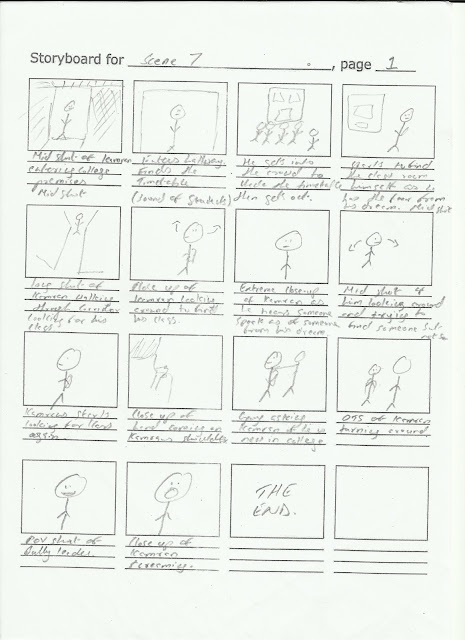 Storyboard for Scene 7, page 1
Mid shot of Kamran
entering college
premises
Mid shot
Enters hallway.
Finds the
timetable
(sound of students)
He gets into
the crowd to
the timetable
then gets out.
Starts to find
the class room
himself as he
has the fear from
his dream. Mid shot
Long shot of
Kamran walking
through corridor
looking for his
class.
Close up of
Kamran looking
around to find
his class.
Extreme close-up
of Kamran as
he hears someone
speak as of someone
from his dream.
Mid shot of
him looking around
and trying to
find someone but
not
Kamran starts
looking for class
again
Close up of
hand coming on
Kamrans shoulder
asking
Kamran if he is
new in college
OTS of Kamran
turning around
POV shot of
bully leader.
Close up of
Kamran
screaming.
THE
END.